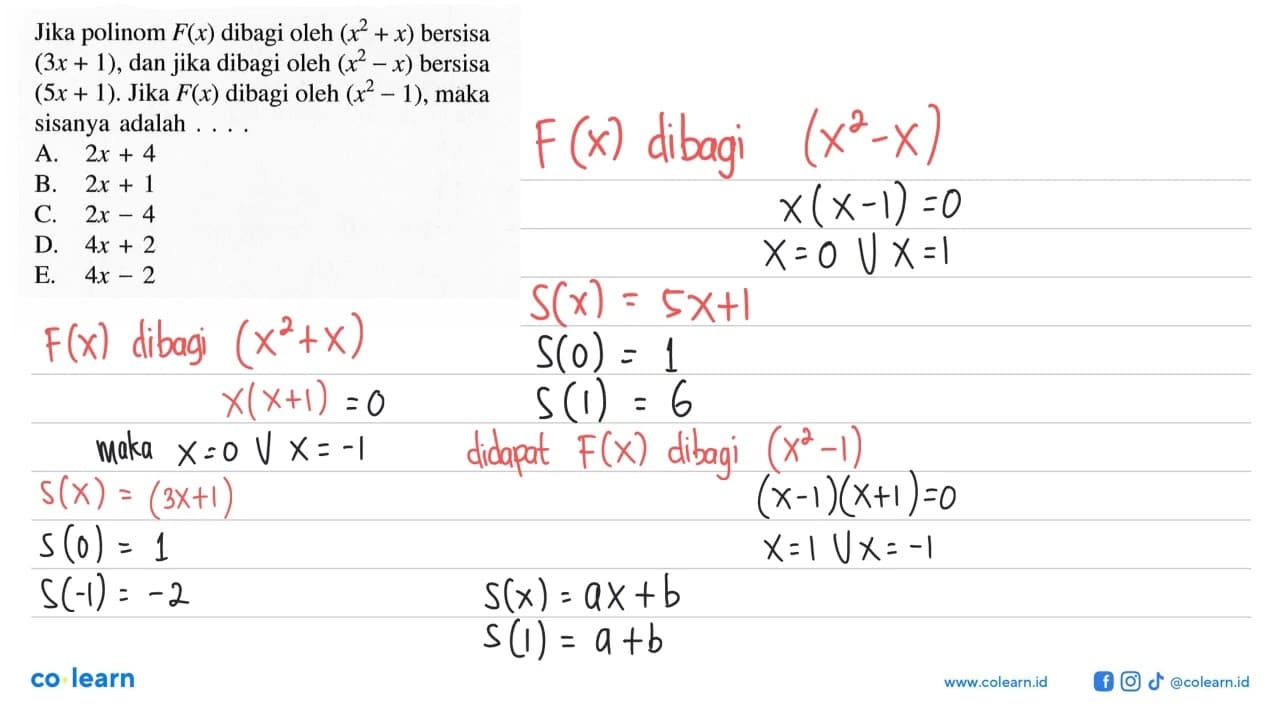 Jika polinom F(x) dibagi oleh (x² + x) bersisa
(3x + 1), dan jika dibagi oleh (x² − x) bersisa
(5x + 1). Jika F(x) dibagi oleh (x² − 1), maka
sisanya adalah . . . .
A. 2x + 4
B. 2x + 1
C. 2x − 4
D. 4x + 2
E. 4x − 2
F(x) dibagi (x²+x)
x(x+1) = 0
maka x=0 V x=-1
S(x) = (3x+1)
S(0) = 1
S(-1) = -2
F(x) dibagi (x²-x)
x(x-1) = 0
x=0 V x=1
S(x) = 5x+1
S(0) = 1
S(1) = 6
didapat F(x) dibagi (x²-1)
(x-1)(x+1)=0
x=1 V x=-1
S(x) = ax+b
S(1) = a+b
co learn
www.colearn.id
@colearn.id